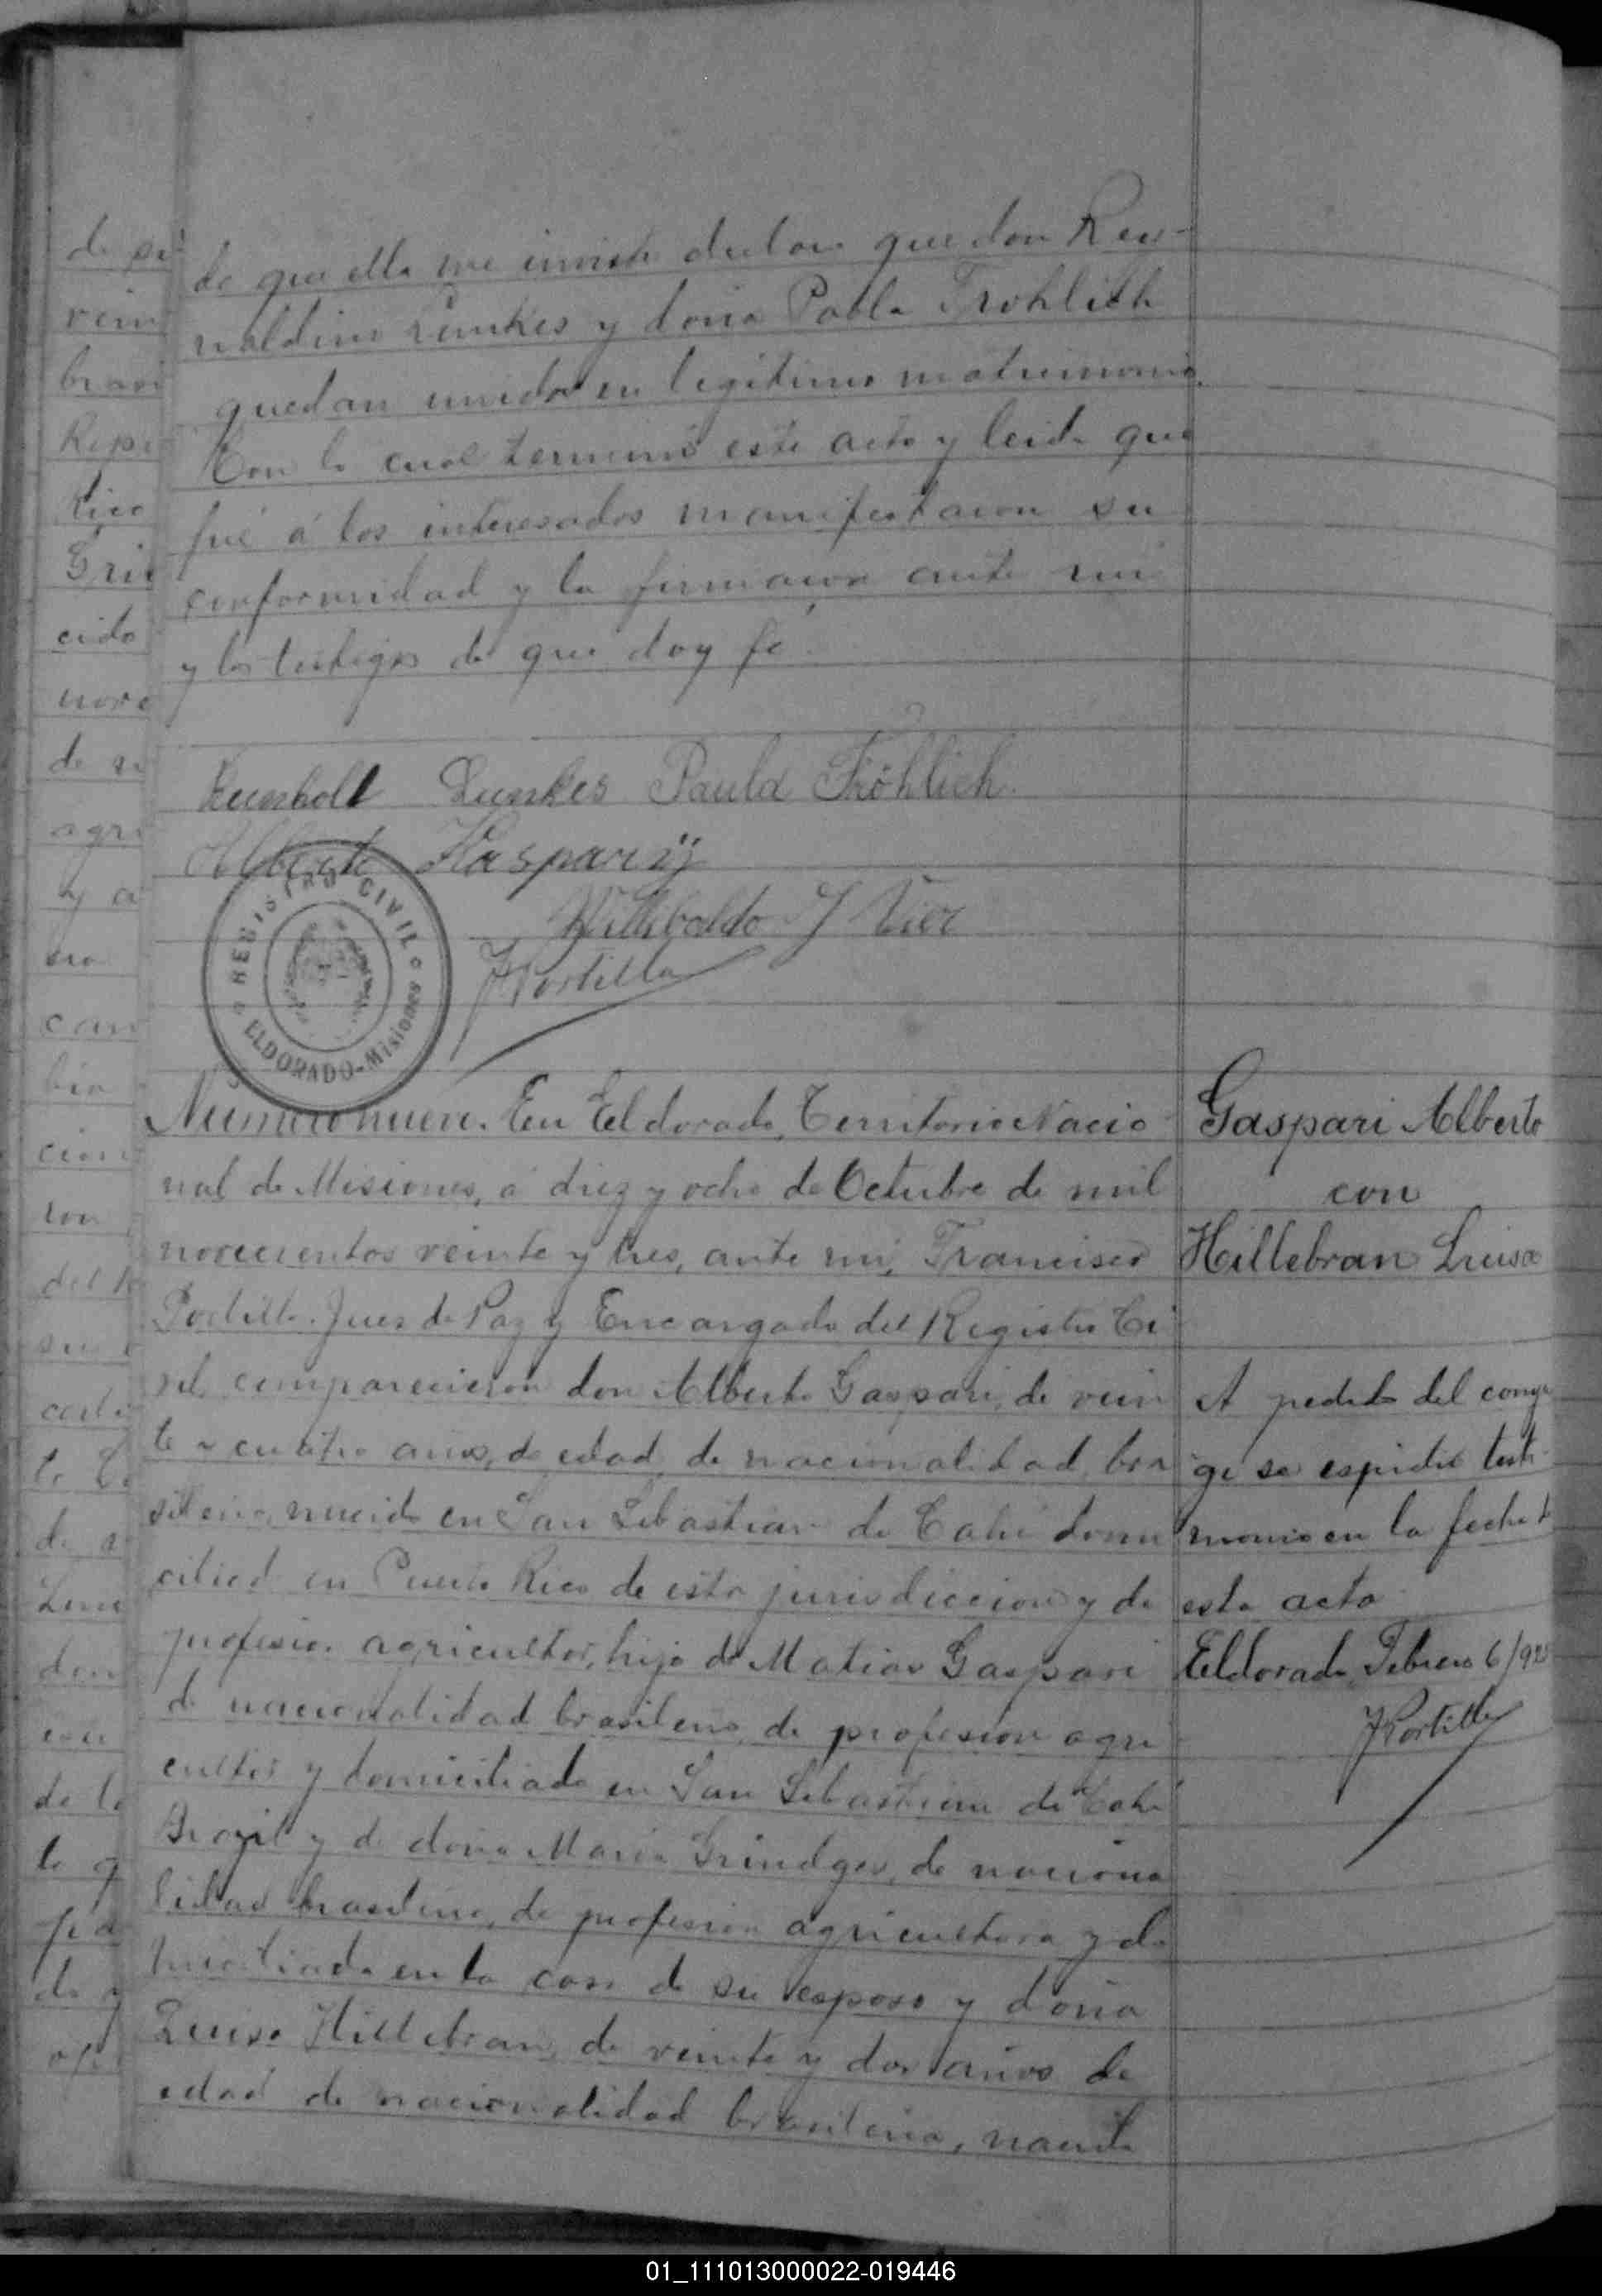 de que ella me inviste declaro que don Rey-
naldino Lunkes y doña Pabla Frohlich
quedan unidos en legitimo matrimonio.
Con lo cual terminó este acto y leida que
fué á los interesados manifestaron su
conformidad y la firmaron ante mi
y los testigos de que doy fé.
Lunkes Paula Fröhlich.
Alberto Kasparÿ
Willibaldo J Vier
FPortillo
REGISTRO CIVIL
ELDORADO-Misiones
Numero nueve. En Eldorado, Territorio Nacio
nal de Misiones, á diez y ocho de Octubre de mil
novecientos veinte y tres, ante mi, Francisco
Portillo Juez de Paz y Encargado del Registro Ci
vil comparecieron don Alberto Gaspari, de vein
te y cuatro años, de edad, de nacionalidad bra
sileña, nacido en San Sebastian de Cahi domi
ciliad en Puerto Rico de esta jurisdiccion y de
profesion agricultor, hijo de Matias Gaspari
de nacionalidad brasileña, de profesion agri
cultor y domiciliado en San Sebastian de Cahi
Brazil y de doña Maria Grindges, de naciona
lidad brasileña, de profesion agricultora y do
miciliada en la casa de su esposo y doña
Luisa Hillebran, de veinte y dos años de
edad de nacionalidad brasileña, nacida
Gaspari Alberto
con
Hillebran Luisa
A pedido del conyu
ge se espidió testi
monio en la fecha d
esta acta
Eldorado, Febrero 6/92
FPortillo
de
vein
brasi
Rico
Grin
cido
nove
de
agri
y
can
cion
ron
del
de
don
de la
lo q
de y
01_111013000022-019446